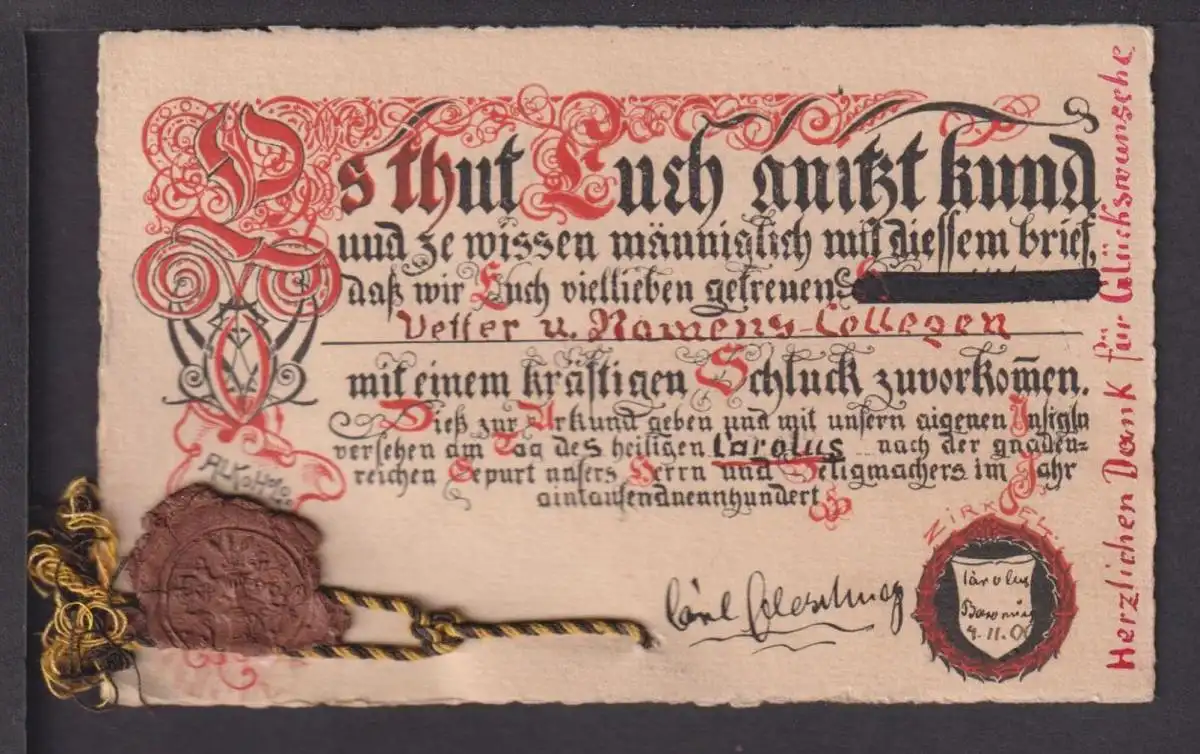 Es thut Euch anitzt kund
und ze wissen männiglich mit diessem brief,
daß wir Euch viellieben getreuen
Vetter u. Namens-Collegen
mit einem kräftigen Schluck zuvorkom̅en.
Dieß zur Urkund geben und mit unsern aigenen Insigln
versehen am Tag des heiligen Carolus nach der gnaden-
reichen Gepurt unsers Herrn und Seligmachers im Jahr
aintausendneunhundert
Herzlichen Dank für Glückswunsche
ZIRKEL.
Carolus
4.11.00